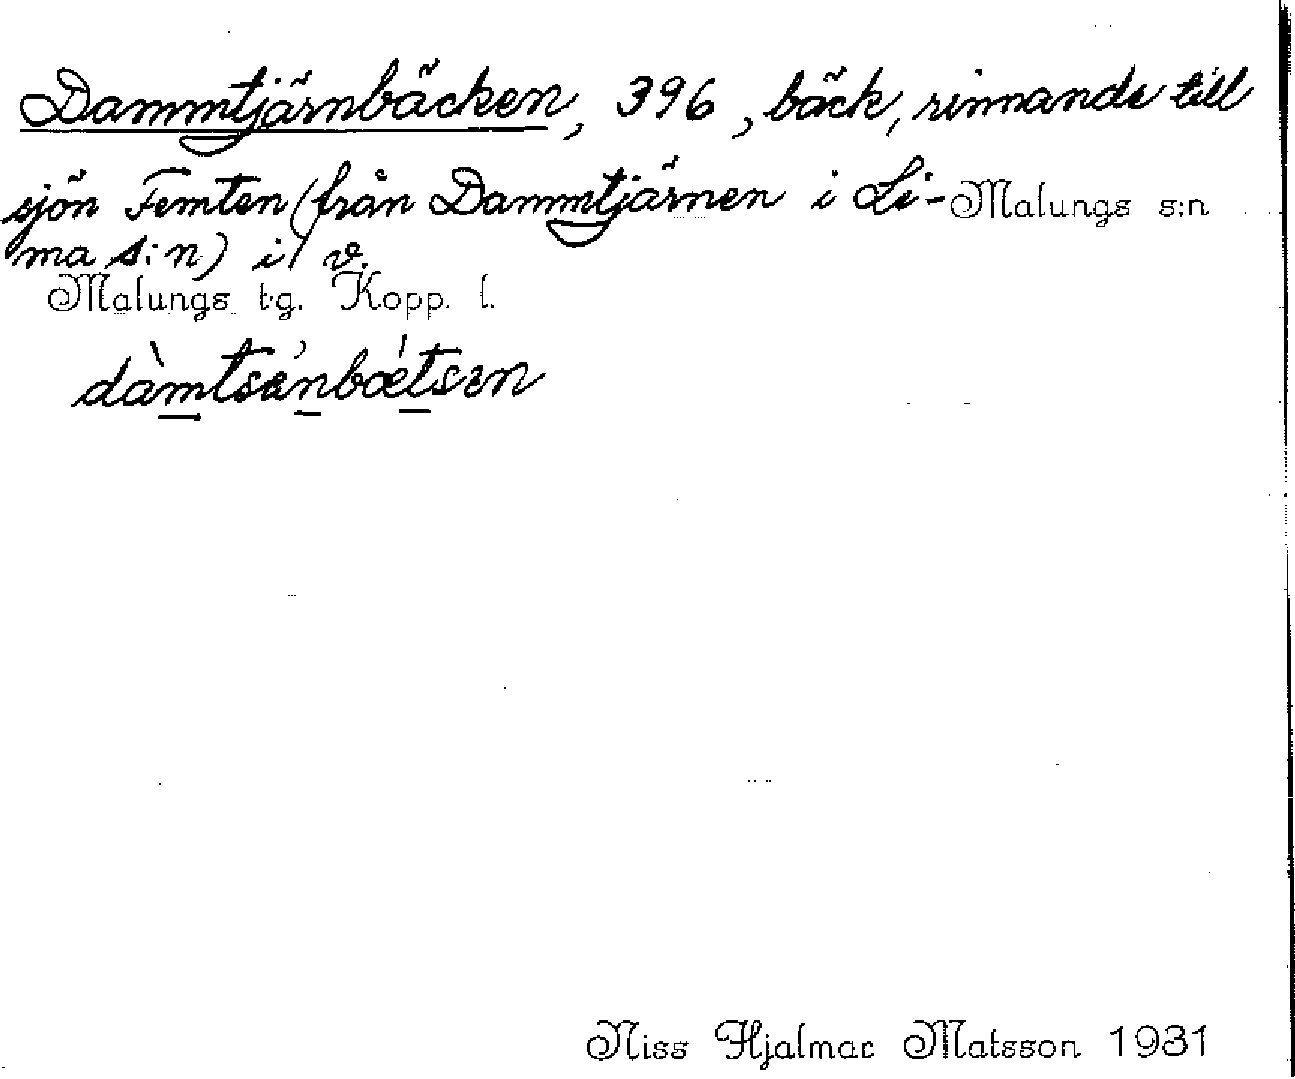 Dammtjärnbäcken, 396, bäck, rinnande till
sjön Femten (från Dammtjärnen i Li- Malungs s:n
ma s:n) i v.
Malungs tg. Kopp. l.
dàmtsànbǽtsɛn
Niss Hjalmar Matsson 1931